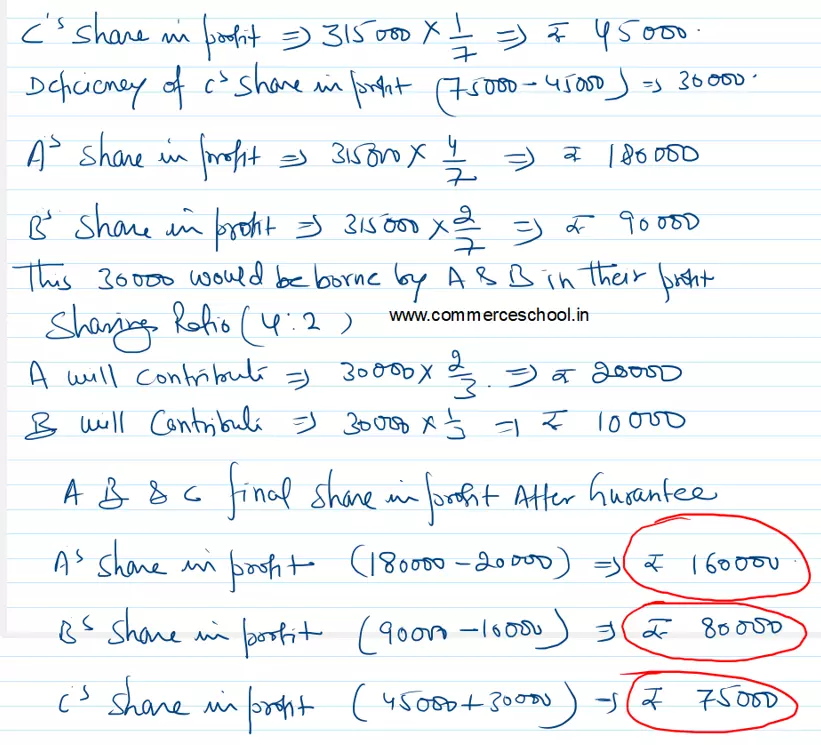 C's Share in profit ⇒ 315000 × 1/7 ⇒ ₹ 45000.
Deficiency of C's Share in profit (75000 - 45000) ⇒ 30000.
A's Share in profit ⇒ 315000 × 4/7 ⇒ ₹ 180000
B's Share in profit ⇒ 315000 × 2/7 ⇒ ₹ 90000
This 30000 would be borne by A & B in their profit
Sharing Ratio (4:2) www.commerceschool.in
A will Contribute ⇒ 30000 × 2/3. ⇒ ₹ 20000
B will Contribute ⇒ 30000 × 1/3 ⇒ ₹ 10000
A B & C final Share in profit After Gurantee
A's Share in profit (180000 - 20000) ⇒ ₹ 160000.
B's Share in profit (90000 - 10000) ⇒ ₹ 80000
C's Share in profit (45000 + 30000) ⇒ ₹ 75000